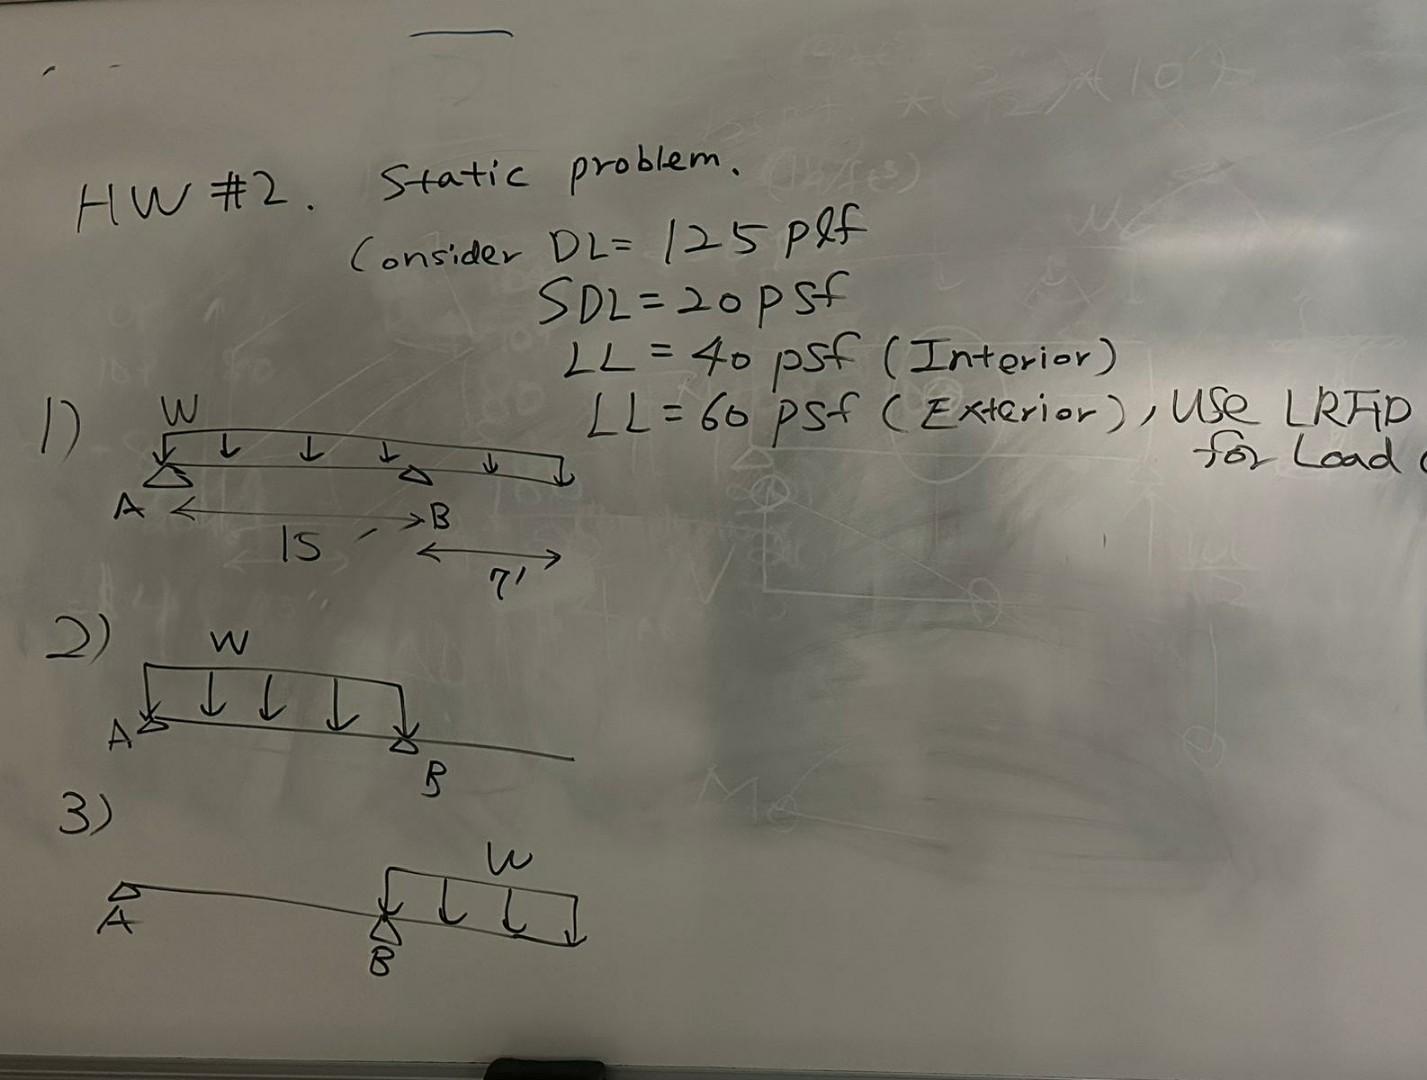 HW #2. Static problem.
Consider DL = 125 plf
SDL = 20 psf
LL = 40 psf (Interior)
LL = 60 psf (Exterior), Use LRFD
for Load
1) W
A B
15'
7'
2) W
A B
3) W
A B